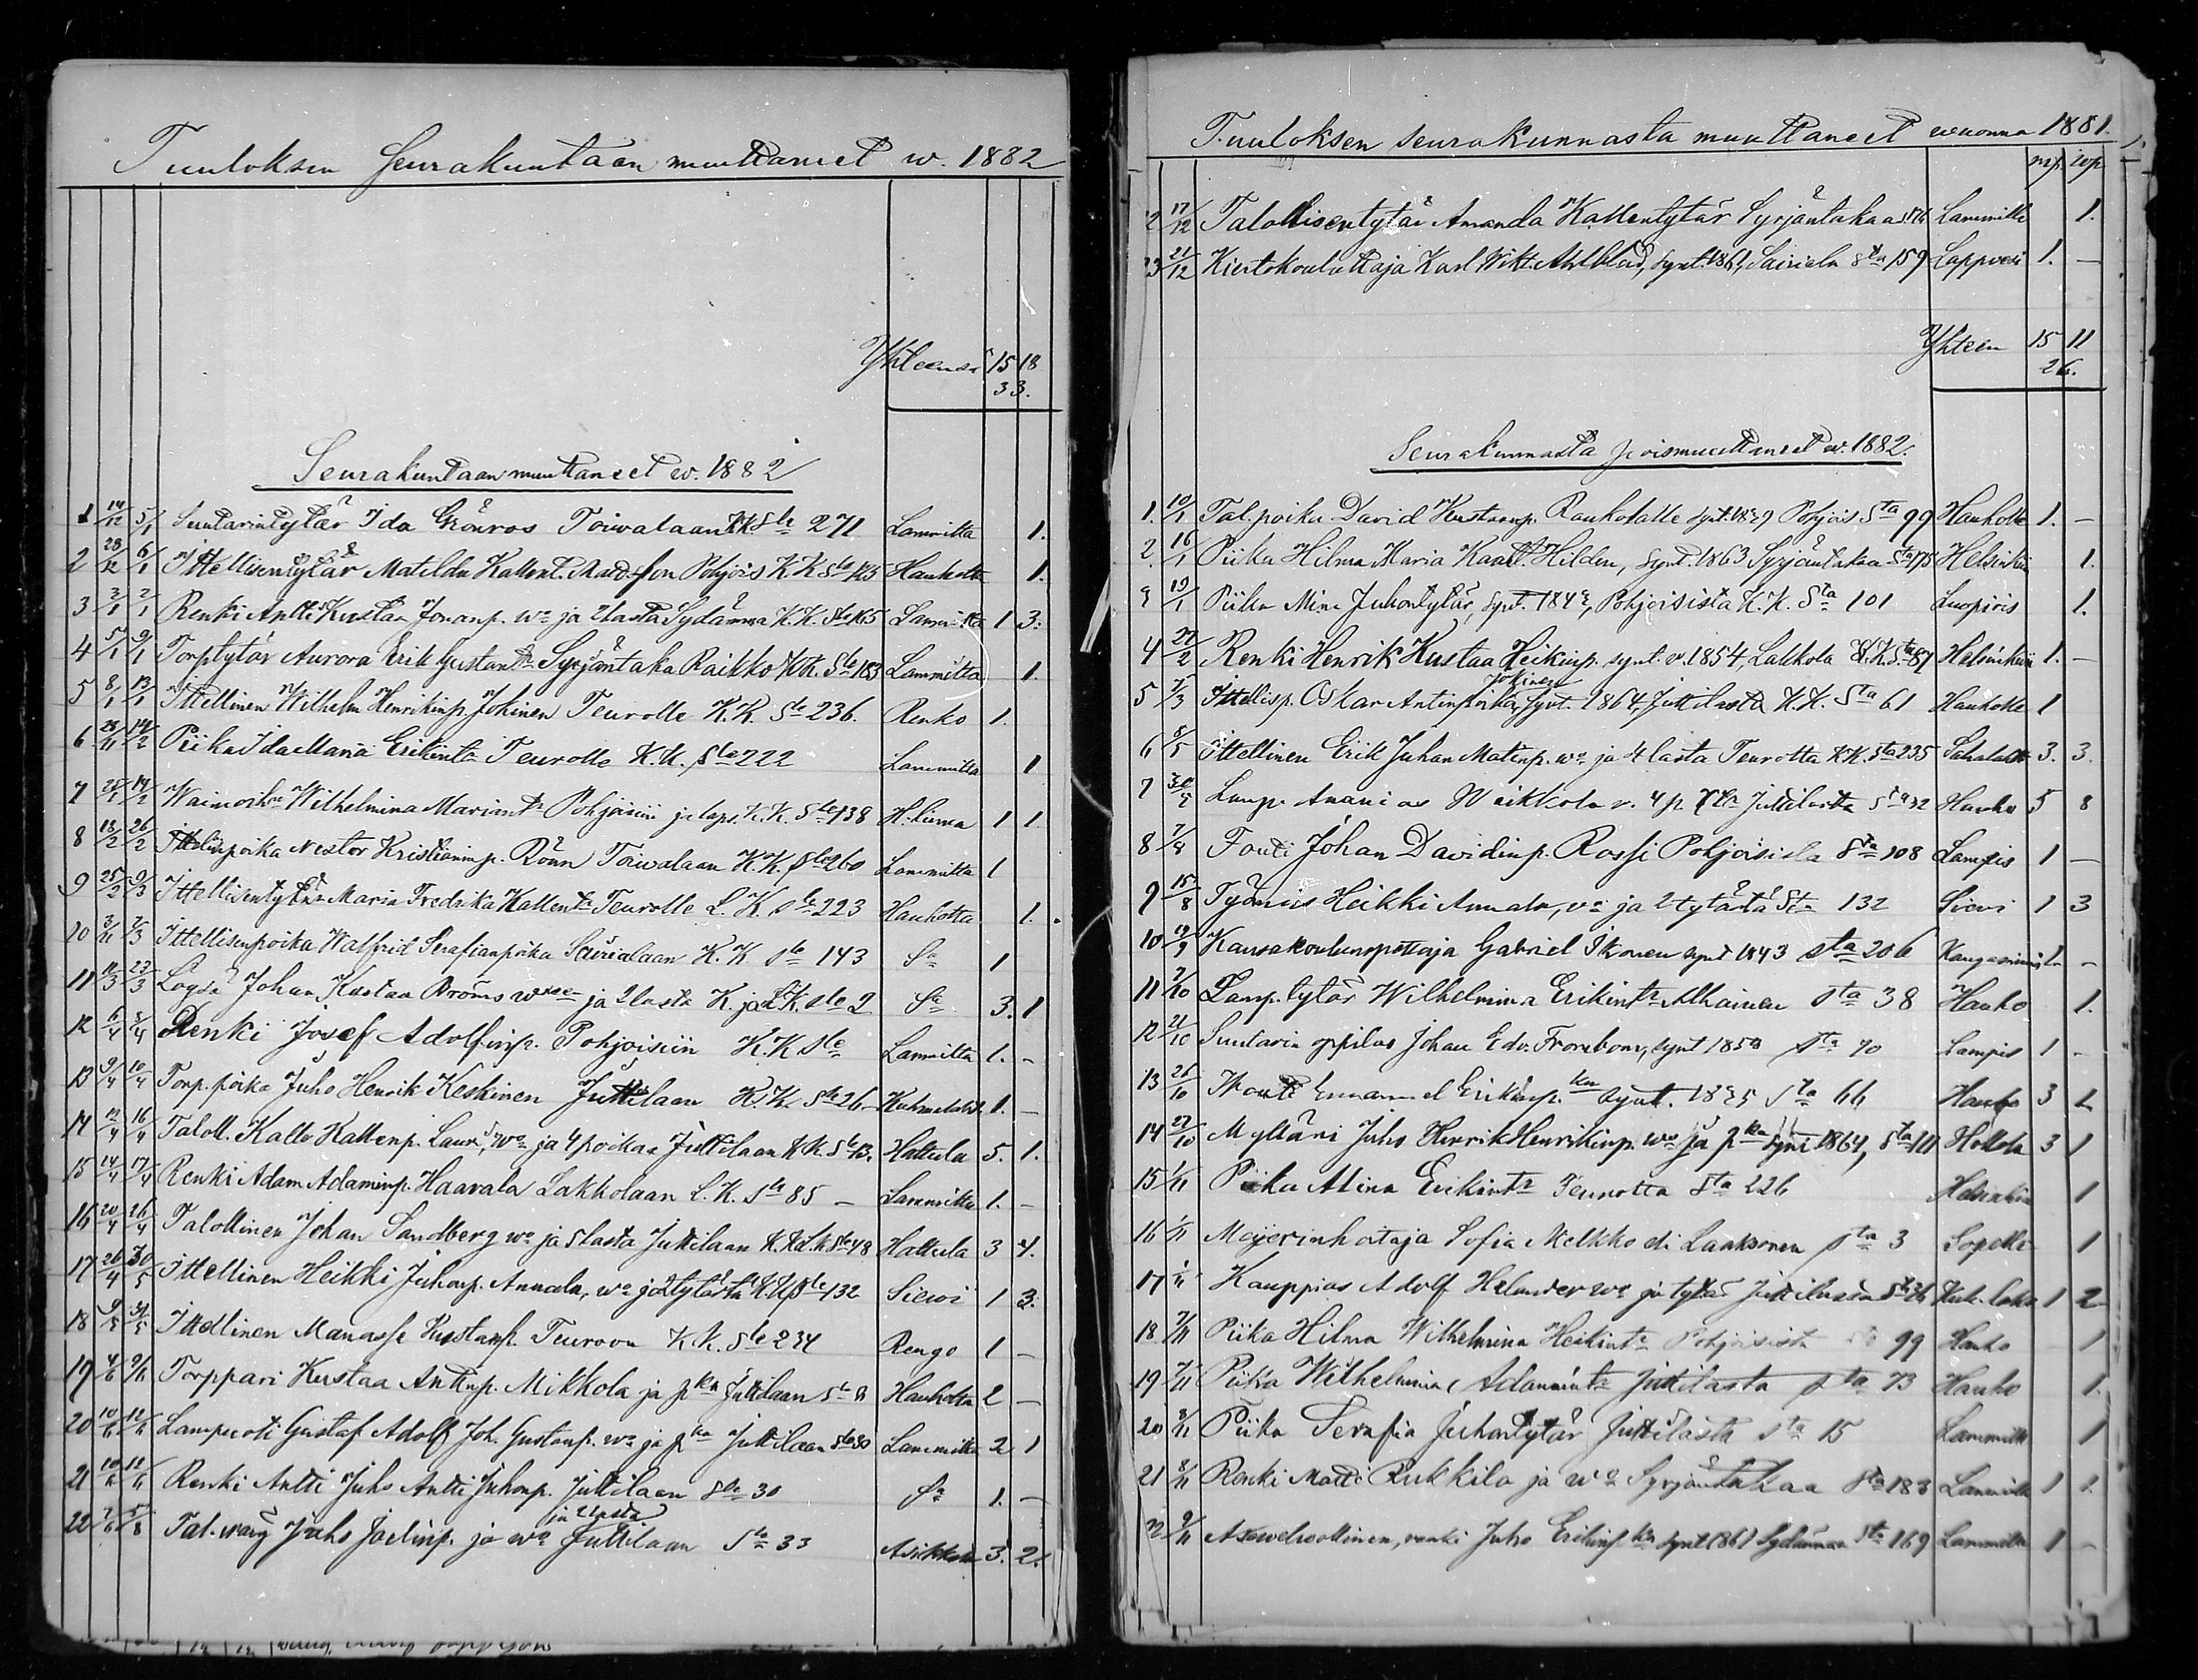 Tuuloksen Seurakuntaan muuttaneet w. 1882
Yhteensä 15 18
33.
Seurakuntaan muuttaneet w. 1882
1 14/12 5/1 Suutarintytär Ida Grönros Toiwalaan K.K. Sle 271 Lammilta 1.
2 28/12 6/1 Ittellisentytär Matilda Kallent. Pohjois K.K. Sle 125 Hauholta 1.
3 3/1 2/1 Renki Antti Kustaa Jonanp. wo ja 2 lasta Sydänmaa K.K. Sle 165 Lammilta 1 3.
4 5/1 9/1 Torp.tytär Aurora Erik Gustantr Syrjäntaka Raikko K.K. Sle 183 Lammilta 1.
5 8/1 13/1 Ittellinen Wilhelm Henrikinp. Jokinen Teurolle K.K. Sle 236. Renko 1.
6 28/11 14/2 Piika Ida Maria Erikintr Teurolle K.K. Sle 222 Lammilta 1
7 25/1 14/2 Waimoih. Wilhelmina Mariantr Pohjoisiin ja laps. K.K. Sle 138 H.linna 1 1.
8 18/2 26/2 Ittellisenpoika Nestor Kristianinp. Rönn Toiwalaan K.K. Sle 260 Lammilta 1
9 25/2 9/3 Ittellisentytär Maria Fredrika Kallentr Teurolle L.K. Sle 223 Hauholta 1.
10 3/11 7/3 Ittellisenpoika Walfrid Serafianpoika Sairialaan K.K. Sle 143 Sa 1
11 11/3 23/3 Johan Kustaa Broms ja 2 lasta K. ja L.K. Sle 2 Sa 3. 1
12 6/4 8/4 Renki Josef Adolfinp. Pohjoisiin K.K Sle Lammilta 1. -
13 9/4 10/4 Torp.poika Juho Henrik Keskinen Juttilaan K.K. Sle 26 Kuhmalahti 1. -
14 12/4 16/4 Taloll. Kalle Kallenp. wo ja 4 poikaa Juttilaan K.K. Sle 13. Hattula 5. 1.
15 14/4 17/4 Renki Adam Adaminp. Haavala Lakkolaan L.K. Sle 85 - Lammilta 1. -
16 20/4 26/4 Talollinen Johan Sandberg wo ja 5 lasta Juttilaan Sle 48 Hattula 3 4.
17 26/4 30/5 Ittellinen Heikki Juhonp. Annala, wo ja 2 tytärtä K.K. Sle 132 Siewi 1 3.
18 9/5 31/5 Ittellinen Manasse Kustaanp. Teuroon K.K. Sle 234 Rengo 1 -
19 4/6 9/6 Torppari Kustaa Antinp. Mikkola ja pka Juttilaan Hauholta 2 -
20 10/6 12/6 Lampuoti Gustaf Adolf Joh. Gustanp. wo ja pka Juttilaan Sle 30 Lammilta 2 1
21 10/6 12/6 Renki Antti Juho Antti Juhonp. Juttilaan Sle 30 Sa 1. -
ja 2 lasta
22 7/6 5/8 Tal. Juho Joelinp. ja wo Juttilaan Sle 33 Asikkala 3. 2.
Tuuloksen seurakunnasta muuttaneet wuonna 1881.
mp. wp
22 17/12 Talollisentytär Amanda Kallentytär Syrjäntakaa Lammille 1.
23 21/12 Kiertokouluttaja Karl Wikt. Ahlblad, synt. 1861, Sairiala Sta 159 Lappvesi 1. -
Yhteen 15 11
26.
Seurakunnasta poismuuttaneet w. 1882.
1. 10/1 Tal.poika David Kustaanp. Raukolalle Pohjois Sta 99 Hauholle 1. -
2. 16/1 Piika Hilma Maria Kaarlt. Hilden, synt. 1863 Syrjäntakaa Sta 175 Helsinkiin 1.
3 19/1 Piika Mina Juhontytär, synt. 1842, Pohjoisista K.K. Sta 101 Luopiois 1.
4 27/2 Renki Henrik Kustaa Heikinp. synt. v. 1854, Lakkola K.K. Sta 87 Helsinkiin 1. -
Jokinen
5 5/3 Ittellisp. Oskar Antinpoika, synt. 1864, Juttilasta K.K. Sta 61 Hauholle 1
6 8/5 Ittellinen Erik Juhan Matinp. wo ja 4 lasta Teurolta K.K. Sta 235 Sahalahti 3. 3.
7 30/5 Lamp. Ananias Weikkola v. 4 p. Juttilasta Sta 32 Hauho 5 8
8 7/8 Fouti Johan Davidinp. Rossi Pohjoisista Sta 108 Lampis 1 -
9 15/8 Työmies Heikki Annala, vo ja 2 tytärtä Sta 132 Sievi 1 3
10 19/9 Kansakoulunopettaja Gabriel Ikonen synt 1843 Sta 206 Kangasniemi 1 -
11 7/10 Lamp.tytär Wilhelmina Erikintr Alhainen Sta 38 Hauho 1.
12 21/10 Suutarin oppilas Johan Edv. Frombom, synt 1858 Sta 70 Lampis 1 -
13 25/10 Wouti Emanuel Erikinp. synt. 1835 Sta 66 Hauho 3 2
14 27/10 Mylläri Juho Henrik Henrikinp. wo ja pka synt 1864, Sta 111 Hollola 3 1
15 1/11 Piika Alina Erikintr Teurolta Sta 226 Helsinkiin 1
16 1/11 Meijerinhoitaja Sofia Melkko eli Laaksonen Sta 3 Lopelle 1
17 1/11 Kauppias Adolf Helander wo ja tytär Juttilasta Sta 26 Kuh.laks 1 2
18. 7/11 Piika Hilma Wilhelmina Heikintr Pohjoisista Sta 99 Hauho 1
19 7/11 Piika Wilhelmina Adamintr Juttilasta Sta 73 Hauho 1.
20 8/11 Piika Serafia Juhontytär Juttilasta Sta 15 Lammille 1
21 8/11 Renki Matti Rukkila ja wo Syrjäntakaa Sta 183 Lammille 1 1.
22 9/11 Asewelwollinen, renki Juho Erikinp. synt 1861 Sydänmaa Sta 169 Lammille 1 -